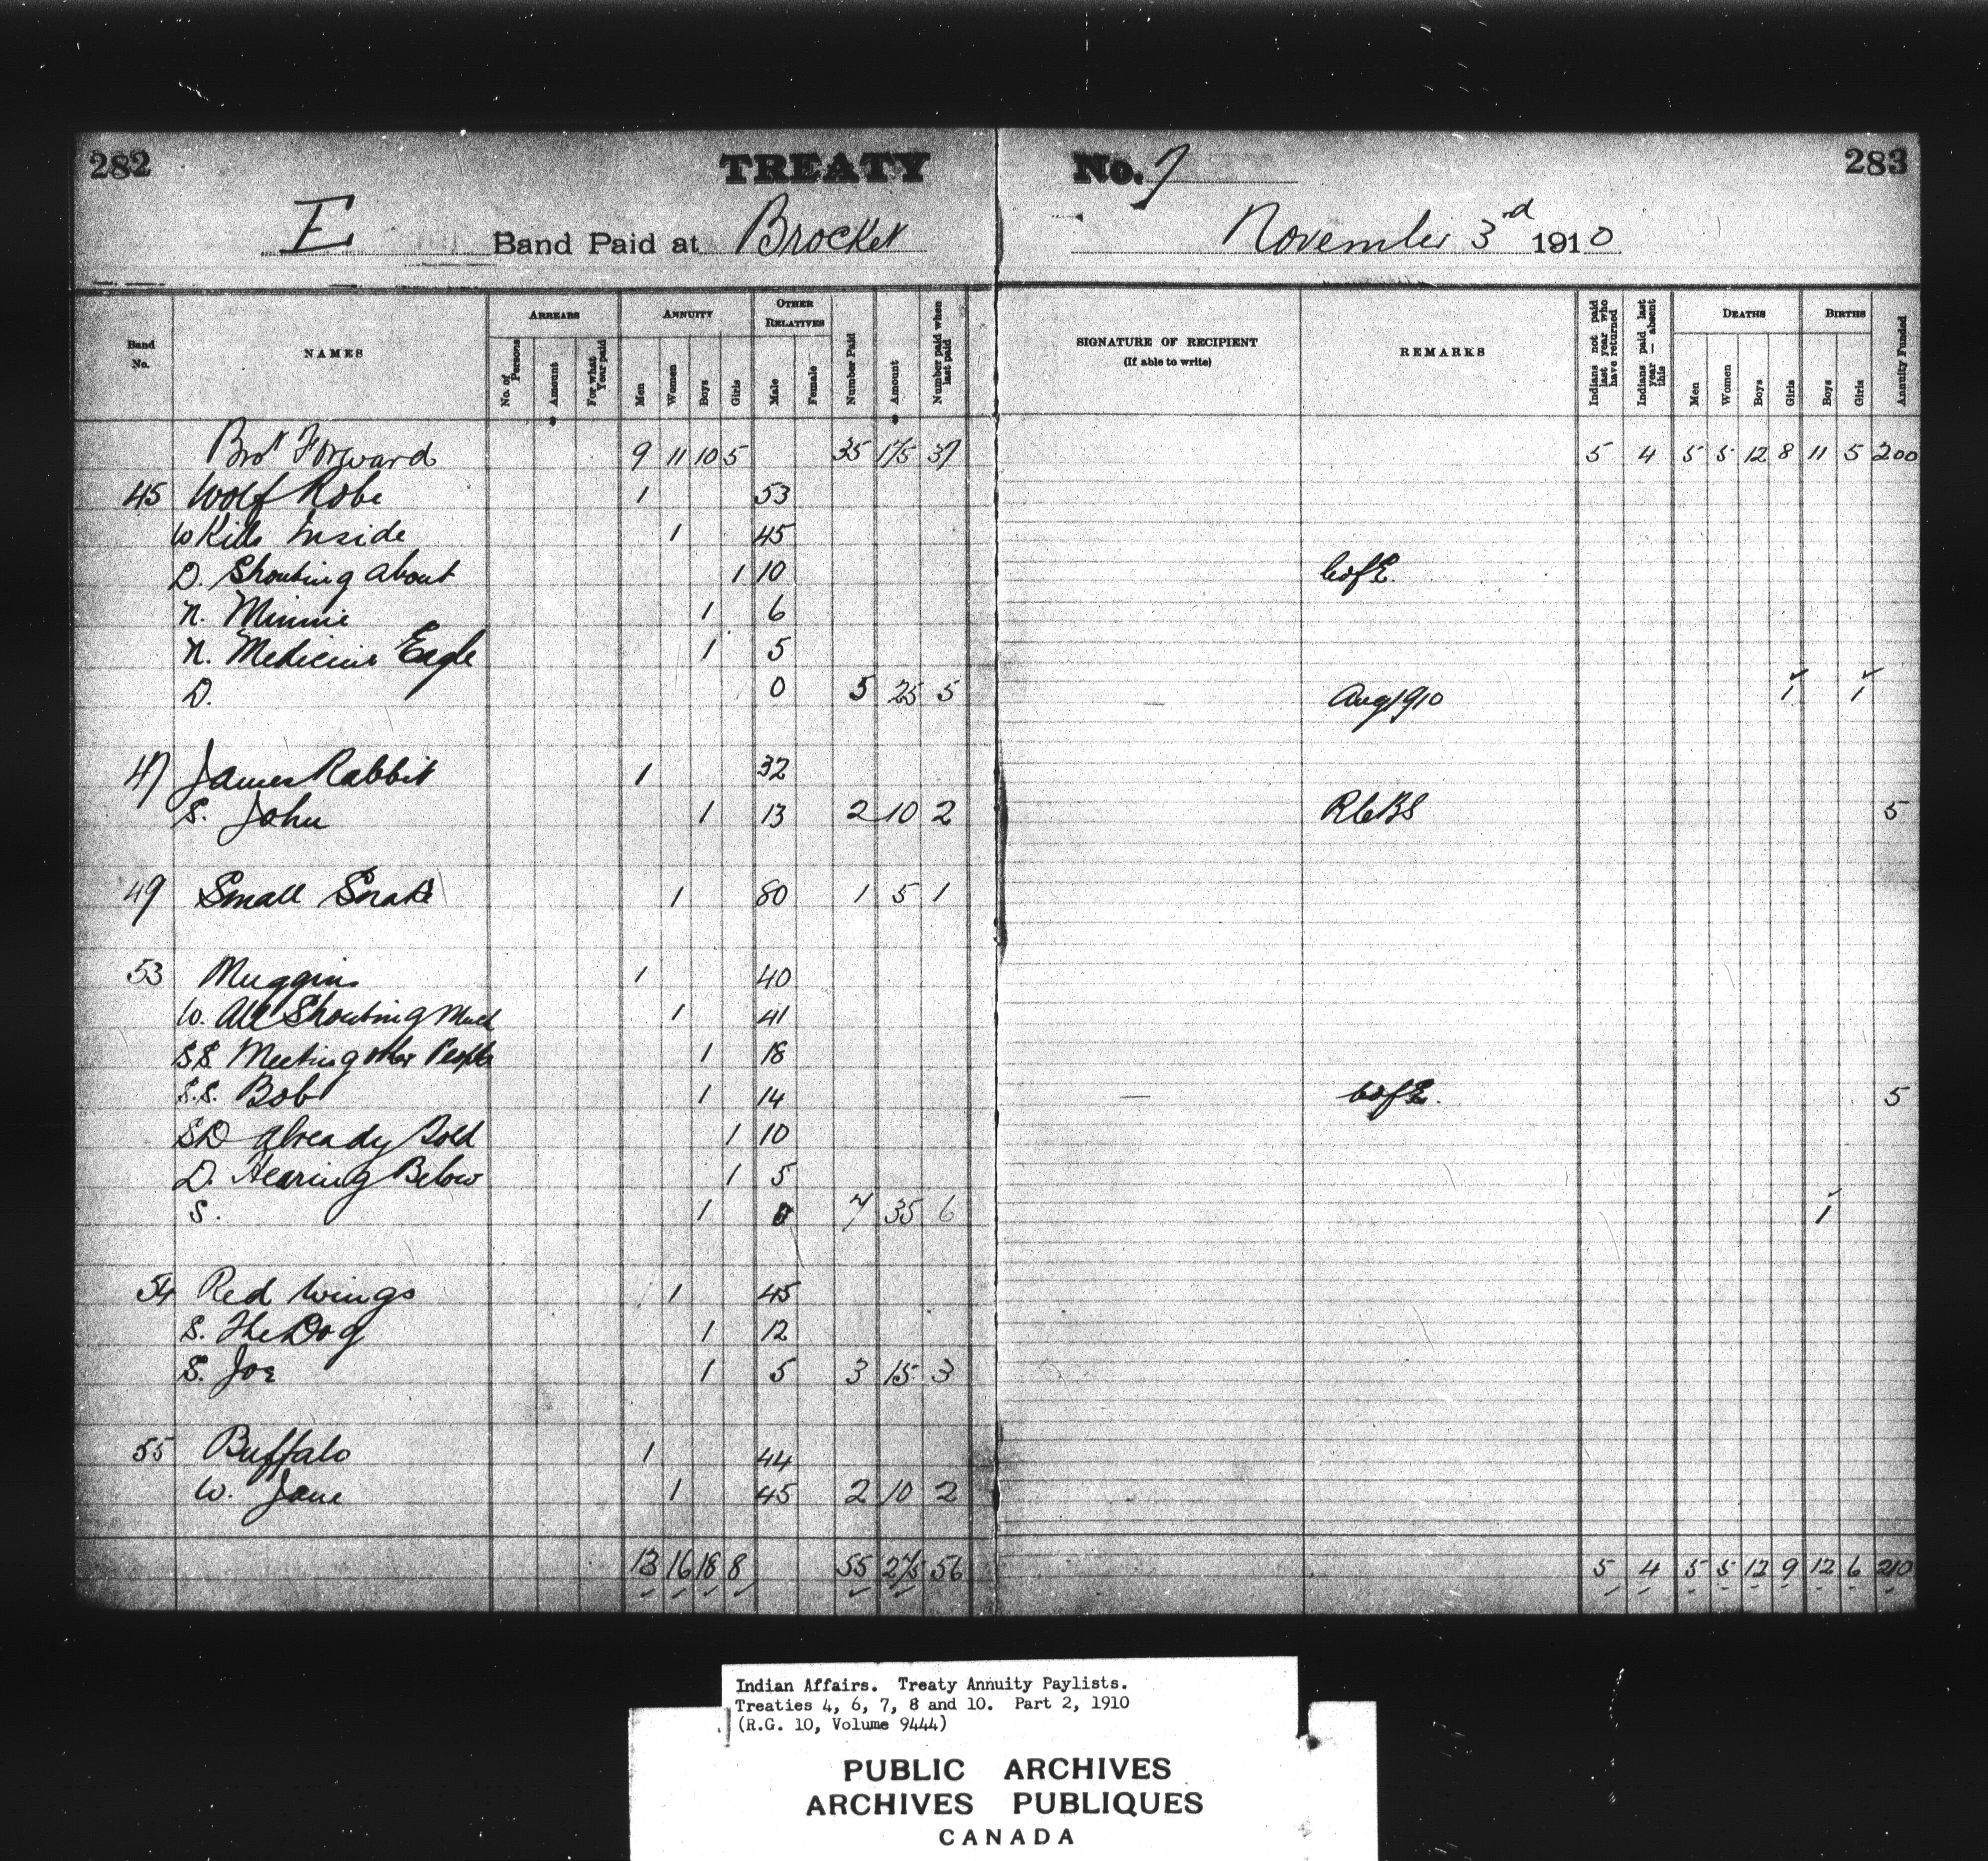 282 TREATY No. 7 283
E Band Paid at Brocket November 3rd 1910
Band No. NAMES ARREARS No. of Persons Amount For what Year paid ANNUITY Men Women Boys Girls OTHER RELATIVES Male Female Number Paid Amount Number paid when last paid SIGNATURE OF RECIPIENT (If able to write) REMARKS Indians not paid last year who have returned Indians paid last year — absent this DEATHS Men Women Boys Girls BIRTHS Boys Girls Annuity Funded
Brot Forward 9 11 10 5 35 175 37 5 4 5 5 12 8 11 5 200
45 Wolf Robe 1 53
W Kills Inside 1 45
D. Shouting about 1 10 CofE.
N. Minnie 1 6
N. Medicine Eagle 1 5
D. 0 5 25 5 Aug 1910 1 1
47 James Rabbit 1 32
S. John 1 13 2 10 2 RCBS 5
49 Small Snake 1 80 1 5 1
53 Muggins 1 40
W. All Shouting Much 1 41
SS Meeting other People 1 18
S.S. Bob 1 14 CofE. 5
SD Already Sold 1 10
D. Hearing Below 1 5
S. 1 7 35 6 1
54 Red Wings 1 45
S. The Dog 1 12
S. Joe 1 5 3 15 3
55 Buffalo 1 44
W. Jane 1 45 2 10 2
13 16 18 8 55 275 56 5 4 5 5 12 9 12 6 210
Indian Affairs. Treaty Annuity Paylists.
Treaties 4, 6, 7, 8 and 10. Part 2, 1910
(R.G. 10, Volume 9444)
PUBLIC ARCHIVES
ARCHIVES PUBLIQUES
CANADA